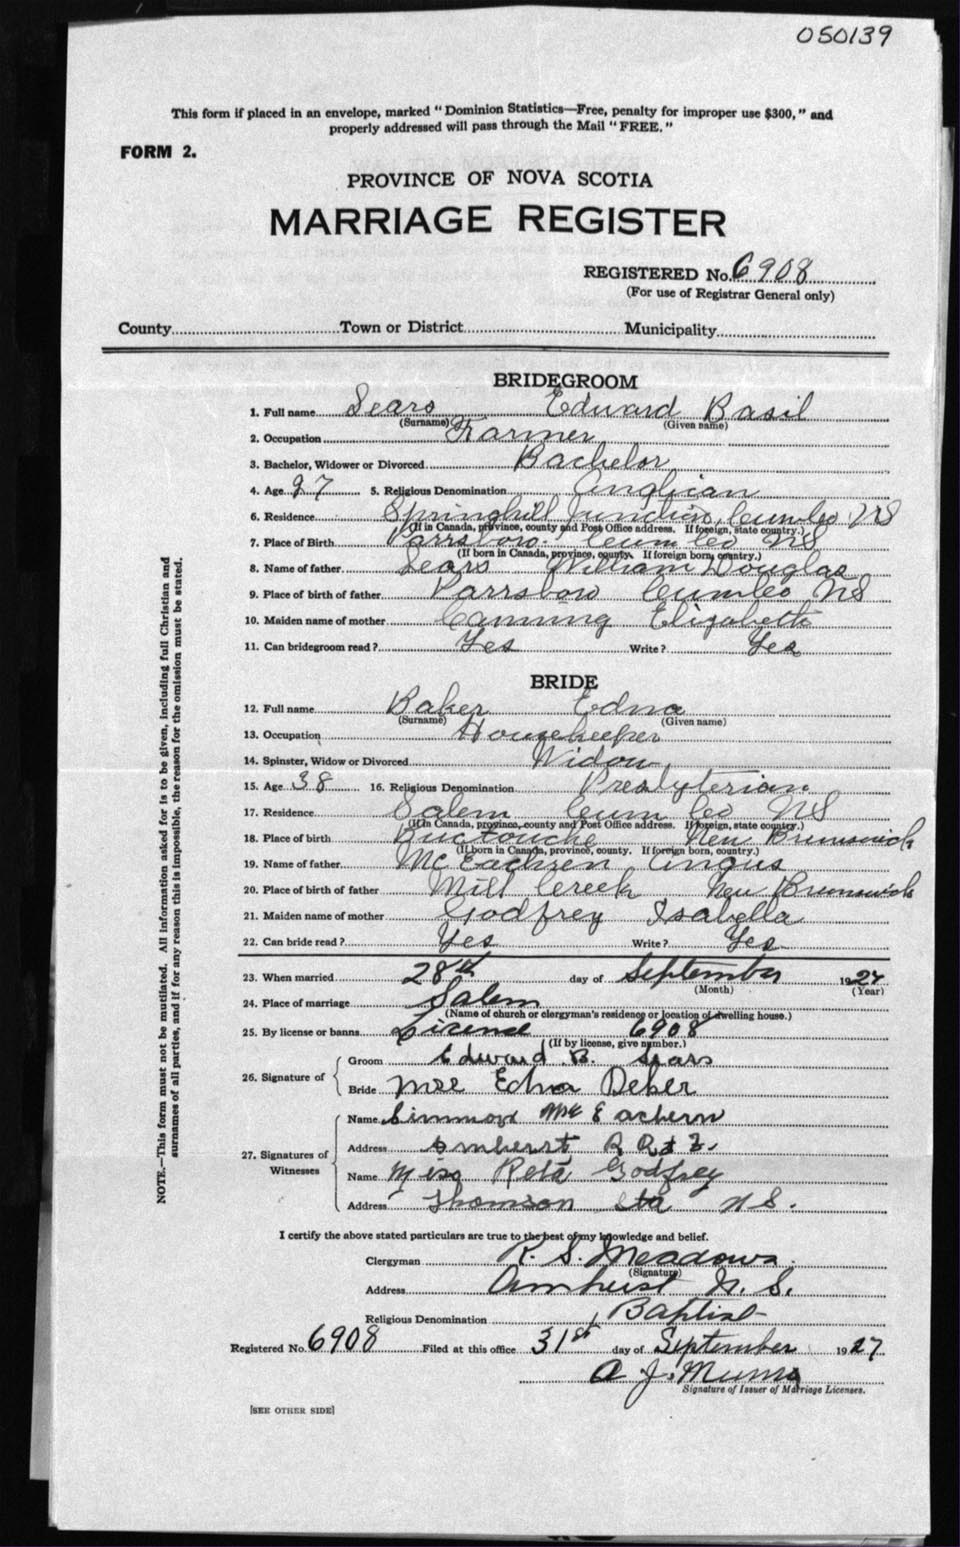 050139
This form if placed in an envelope, marked "Dominion Statistics—Free, penalty for improper use $300," and
properly addressed will pass through the Mail "FREE."
FORM 2.
PROVINCE OF NOVA SCOTIA
MARRIAGE REGISTER
REGISTERED No. 6908
(For use of Registrar General only)
County Town or District Municipality
BRIDEGROOM
1. Full name Sears Edward Basil
(Surname) (Given name)
2. Occupation Farmer
3. Bachelor, Widower or Divorced Bachelor
4. Age 27 5. Religious Denomination Anglican
6. Residence Springhill Junction, Cum Co NS
(If in Canada, province, county and Post Office address. If foreign, state country.)
7. Place of Birth Parrsboro Cum Co NS
(If born in Canada, province, county. If foreign born, country.)
8. Name of father Sears William Douglas
9. Place of birth of father Parrsboro Cum Co NS
10. Maiden name of mother Canning Elizabeth
11. Can bridegroom read? Yes Write? Yes
BRIDE
12. Full name Baker Edna
(Surname) (Given name)
13. Occupation Housekeeper
14. Spinster, Widow or Divorced Widow
15. Age 38 16. Religious Denomination Presbyterian
17. Residence Salem Cum Co NS
(If in Canada, province, county and Post Office address. If foreign, state country.)
18. Place of birth Buctouche New Brunswick
(If born in Canada, province, county. If foreign born, country.)
19. Name of father McEachren Angus
20. Place of birth of father Mill Creek New Brunswick
21. Maiden name of mother Godfrey Isabella
22. Can bride read? Yes Write? Yes
23. When married 28th day of September 1927
(Month) (Year)
24. Place of marriage Salem
(Name of church or clergyman's residence or location of dwelling house.)
25. By license or banns License 6908
(If by license, give number.)
26. Signature of Groom Edward B. Sears
Bride Mrs Edna Beker
27. Signatures of Witnesses Name McEachern
Address Amherst R R
Name Miss Reta Godfrey
Address Thomson Sta N S.
I certify the above stated particulars are true to the best of my knowledge and belief.
Clergyman R. S. Meadows
(Signature)
Address Amherst N. S.
Religious Denomination Baptist
Registered No. 6908 Filed at this office 31st day of September 1927
A. J.
Signature of Issuer of Marriage Licenses.
[SEE OTHER SIDE]
NOTE.—This form must not be mutilated. All information asked for is to be given, including full Christian and
surnames of all parties, and if for any reason this is impossible, the reason for the omission must be stated.